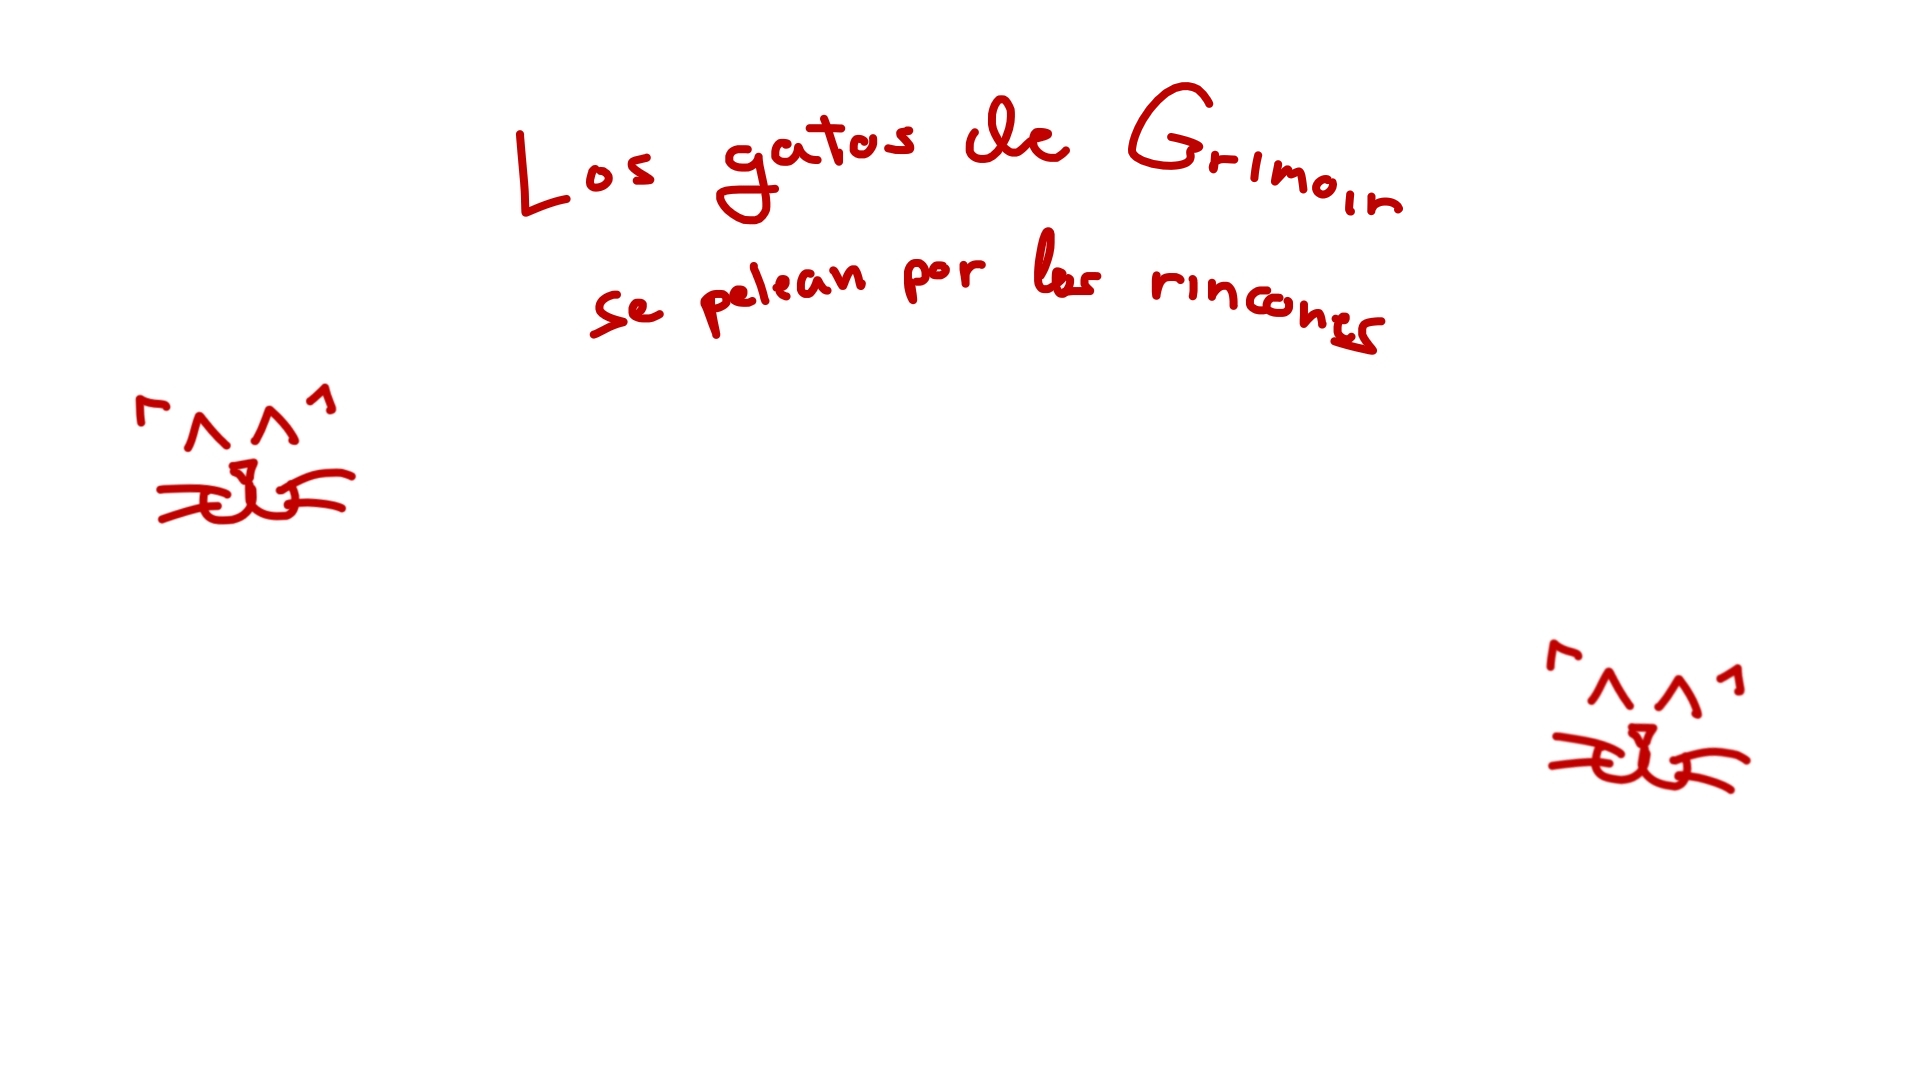 Los gatos de Grimoir
se pelean por los rincones